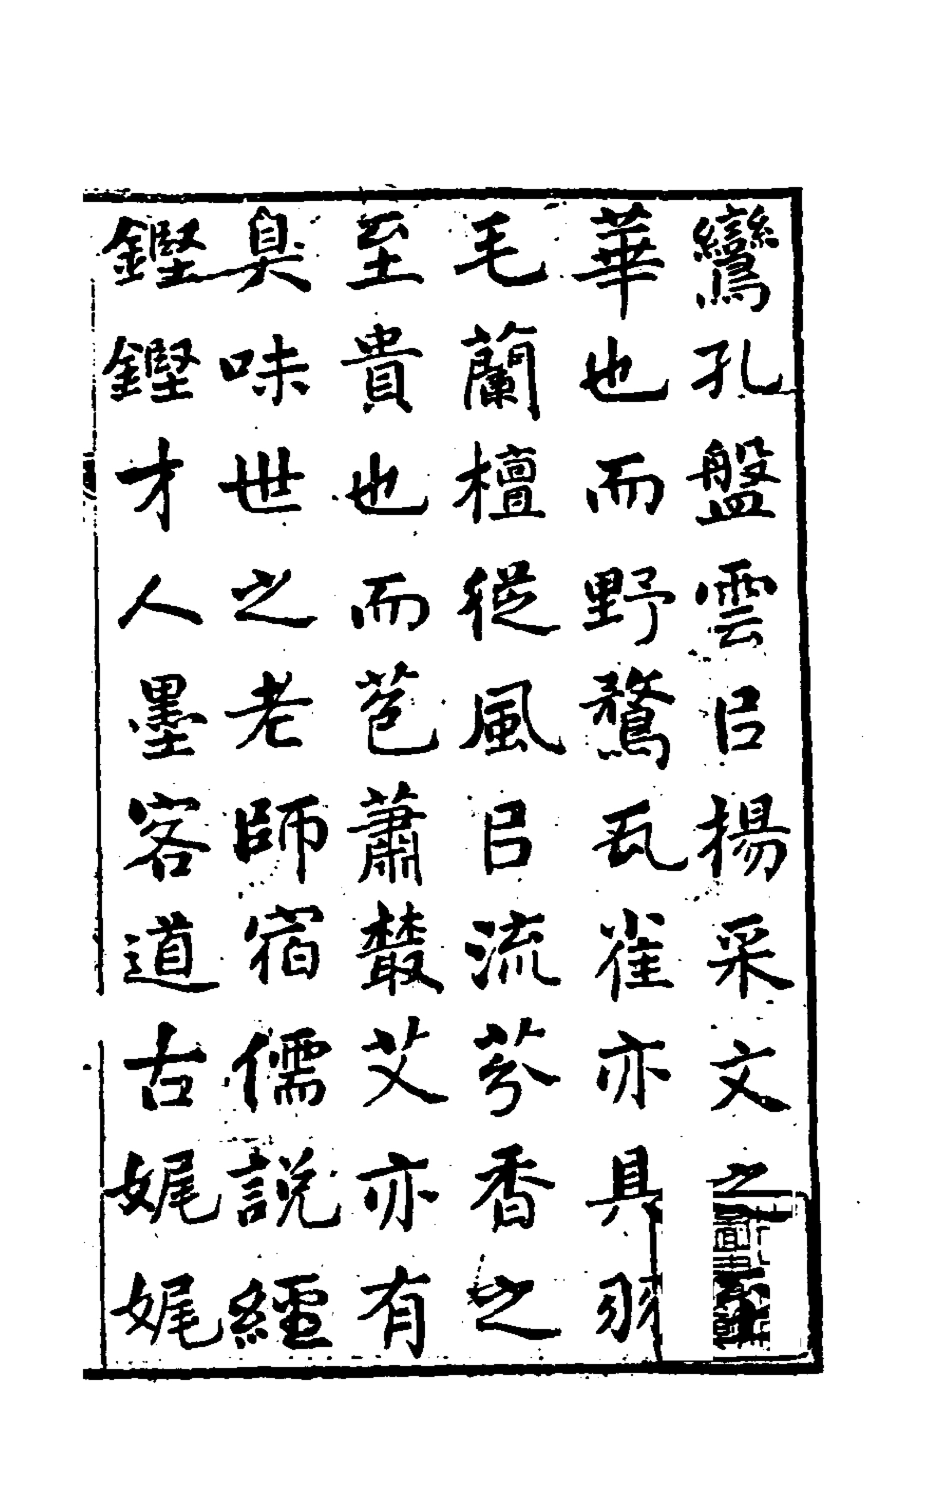 鸞孔盤雲㠯揚采文之至
華也而野鶩瓦雀亦具羽
毛蘭檀從風㠯流芬香之
至貴也而苞蕭叢艾亦有
臭味世之老師宿儒説經
鏗鏗才人墨客道古娓娓